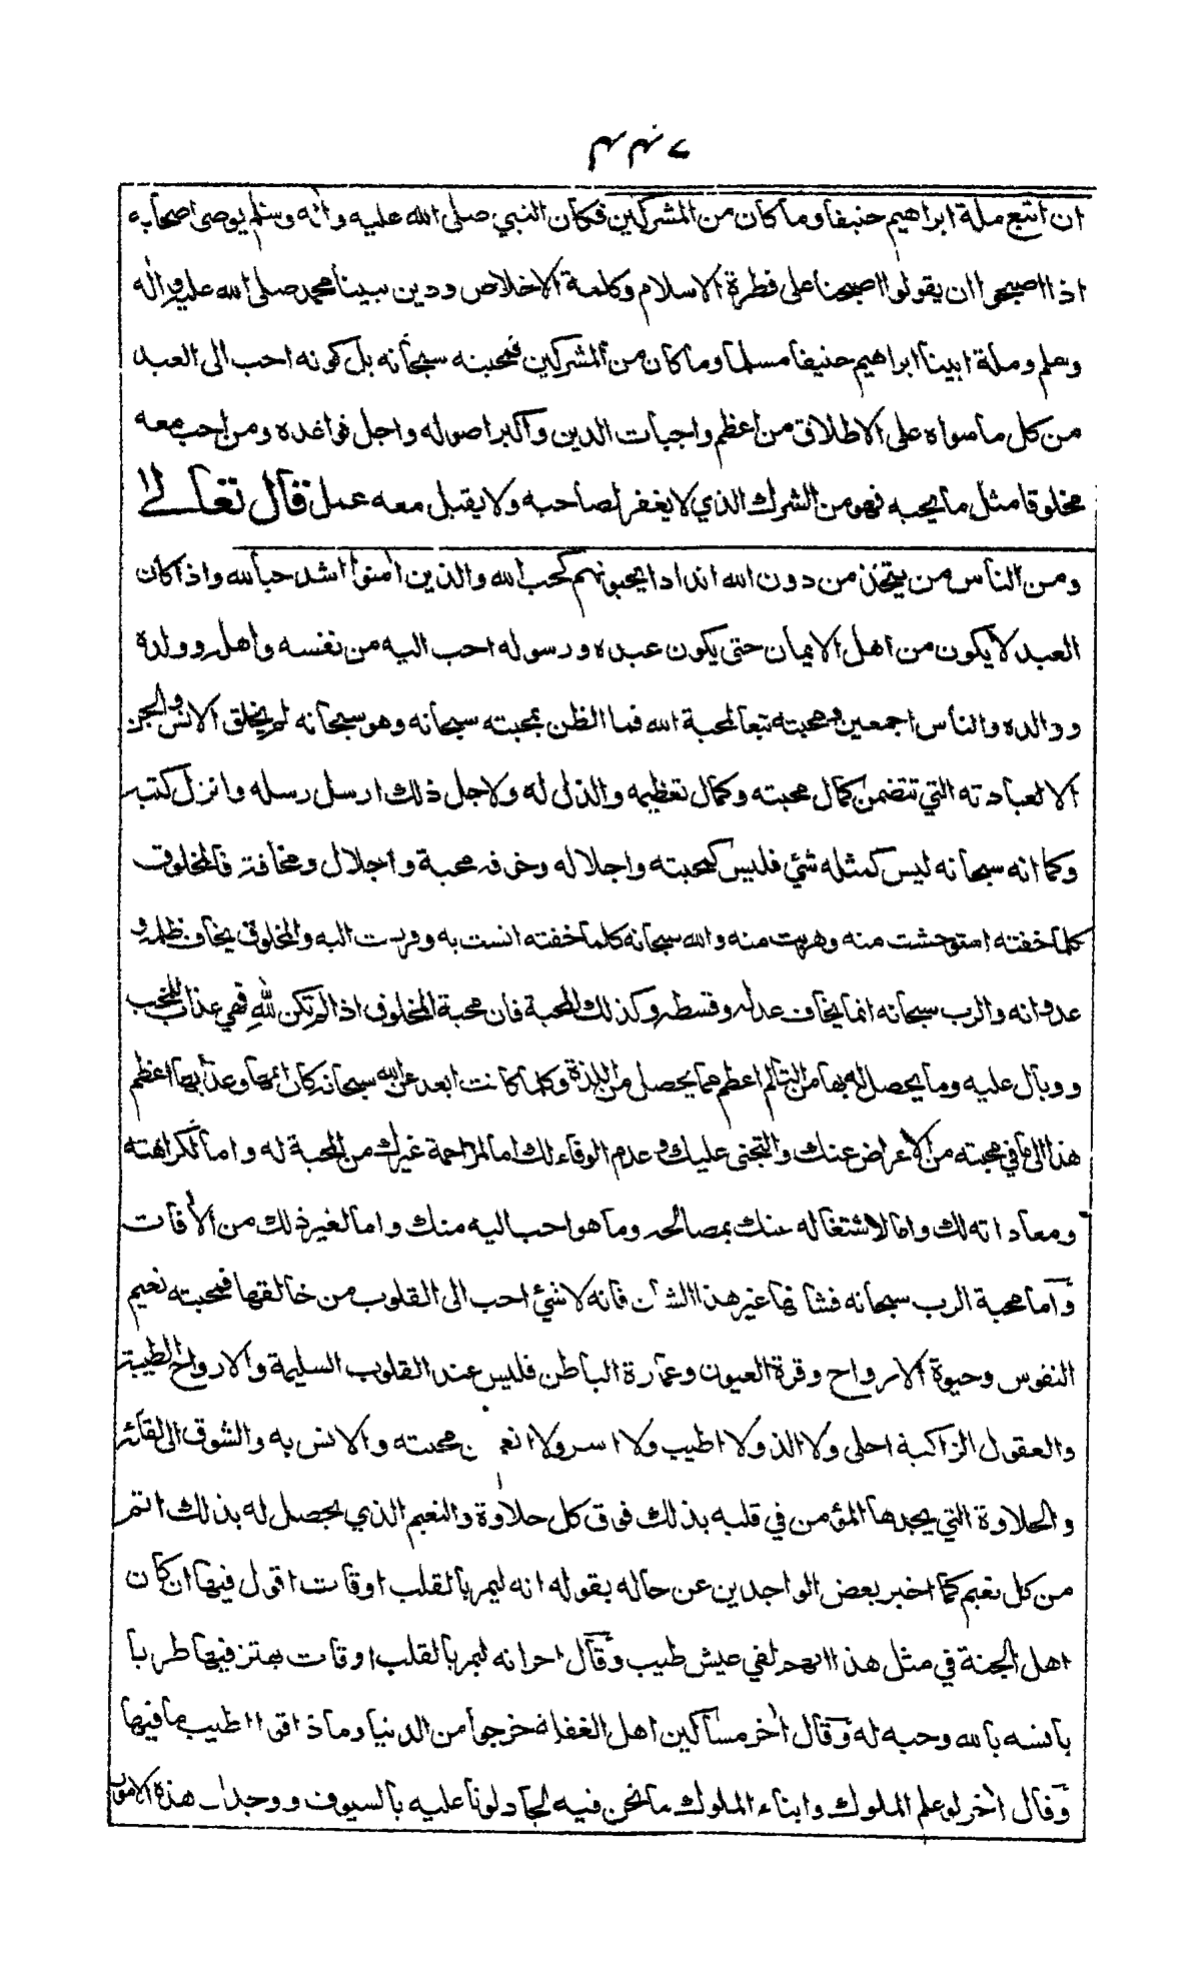 ان اتبع ملة ابراهيم حنيفا وما كان من المشركين فكان النبي صلى الله عليه واٰله وسلم يوصى اصحابه
اذا اصبحوا ان يقولوا اصبحنا على فطرة الاسلام وكلمة الاخلاص ودين نبينا محمد صلى الله عليه واٰله
وسلم وملة ابينا ابراهيم حنيفا مسلما وما كان من المشركين فمحبته سبحانه بل كونه احب الى العبد
من كل ما سواه على الاطلاق من اعظم واجبات الدين واكبر اصوله واجل قواعده ومن احب معه
مخلوقا مثل ما يحبه فهو من الشرك الذي لا يغفر لصاحبه ولا يقبل معه عمل قال تعالى
ومن الناس من يتخذ من دون الله اندادا يحبونهم كحب الله والذين اٰمنوا اشد حبا لله واذا كان
العبد لا يكون من اهل الايمان حتى يكون عبده ورسوله احب اليه من نفسه واهله وولده
ووالده والناس اجمعين ومحبته تبعا لمحبة الله فما الظن بمحبته سبحانه وهو سبحانه لم يخلق الانس والجن
الا لعبادته التي تتضمن كمال محبته وكمال تعظيمه والذل له ولاجل ذلك ارسل رسله وانزل كتبه
وكما انه سبحانه ليس كمثله شئ فليس كمحبته واجلاله وخوفه محبة واجلال ومخافة فالمخلوق
كلما خفته استوحشت منه وهربت منه والله سبحانه كلما خفته انست به وفررت اليه والمخلوق يخاف ظلمه و
عدوانه والرب سبحانه انما يخاف عدله وقسطه وكذلك المحبة فان محبة المخلوق اذا لم تكن لله فهي عذاب للمحب
ووبال عليه وما يحصل له بها من التألم اعظم مما يحصل من اللذة وكلما كانت ابعد عن الله سبحانه كان المها وعذابها اعظم
هذا الى ما في محبته من الاعراض عنك والتجنى عليك وعدم الوفاء لك اما لمزاحمة غيرك من المحبة له واما لكراهته
ومعاداته لك واما لاشتغاله عنك بمصالحه وما هو احب اليه منك واما لغير ذلك من الاٰفات
واما محبة الرب سبحانه فشانها غير هذا الشان فانه لا شئ احب الى القلوب من خالقها فمحبته نعيم
النفوس وحيوة الارواح وقرة العيون وعمارة الباطن فليس عند القلوب السليمة والارواح الطيبة
والعقول الزاكية احلى ولا الذ ولا اطيب ولا اسر ولا انعم من محبته والانس به والشوق الى لقائه
والحلاوة التي يجدها المؤمن في قلبه بذلك فوق كل حلاوة والنعيم الذي يحصل له بذلك اتم
من كل نعيم كما اخبر بعض الواجدين عن حاله بقوله انه ليمر بالقلب اوقات اقول فيها ان كان
اهل الجنة في مثل هذا انهم لفي عيش طيب وقال اخر انه ليمر بالقلب اوقات يهتز فيها طربا
بانسه بالله وحبه له وقال اٰخر مساكين اهل الغفلة خرجوا من الدنيا وما ذاقوا اطيب ما فيها
وقال اٰخر لو علم الملوك وابناء الملوك ما نحن فيه لجادلونا عليه بالسيوف ووجدان هذه الامور